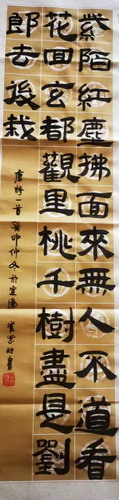 紫陌紅塵拂面來無人不道看
花回玄都觀里桃千樹盡是劉
郎去後栽
唐詩一首癸卯仲冬於